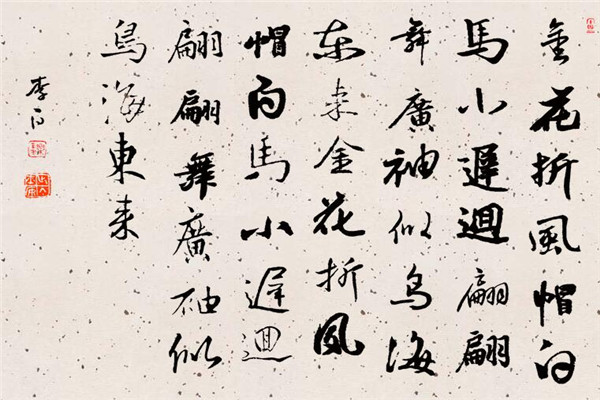 金花折風帽白
馬小遲迴翩翩
舞廣袖似鳥海
東来金花折風
帽白馬小遲迴
翩翩舞廣袖似
鳥海東来
李白